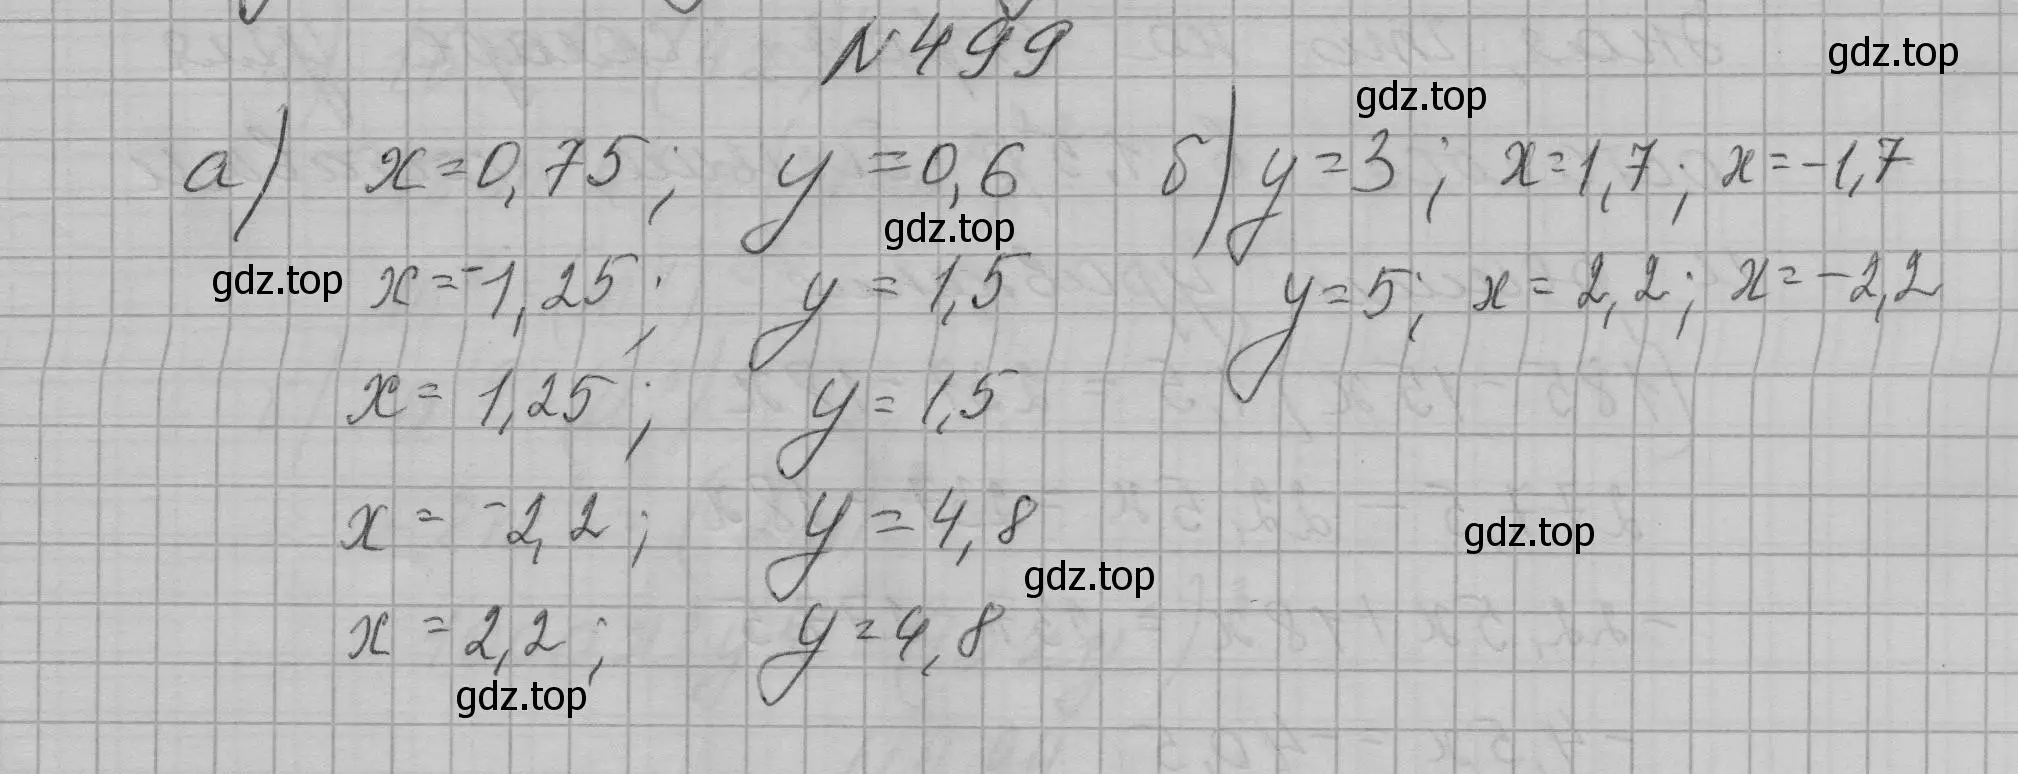 №499
gdz.top
gdz.top
а) x=0,75; y=0,6 б) y=3; x=1,7; x=-1,7
gdz.top
gdz.top x=-1,25; y=1,5 y=5; x=2,2; x=-2,2
x=1,25; y=1,5
x=-2,2; y=4,8
gdz.top
gdz.top
x=2,2; y=4,8
gdz.top